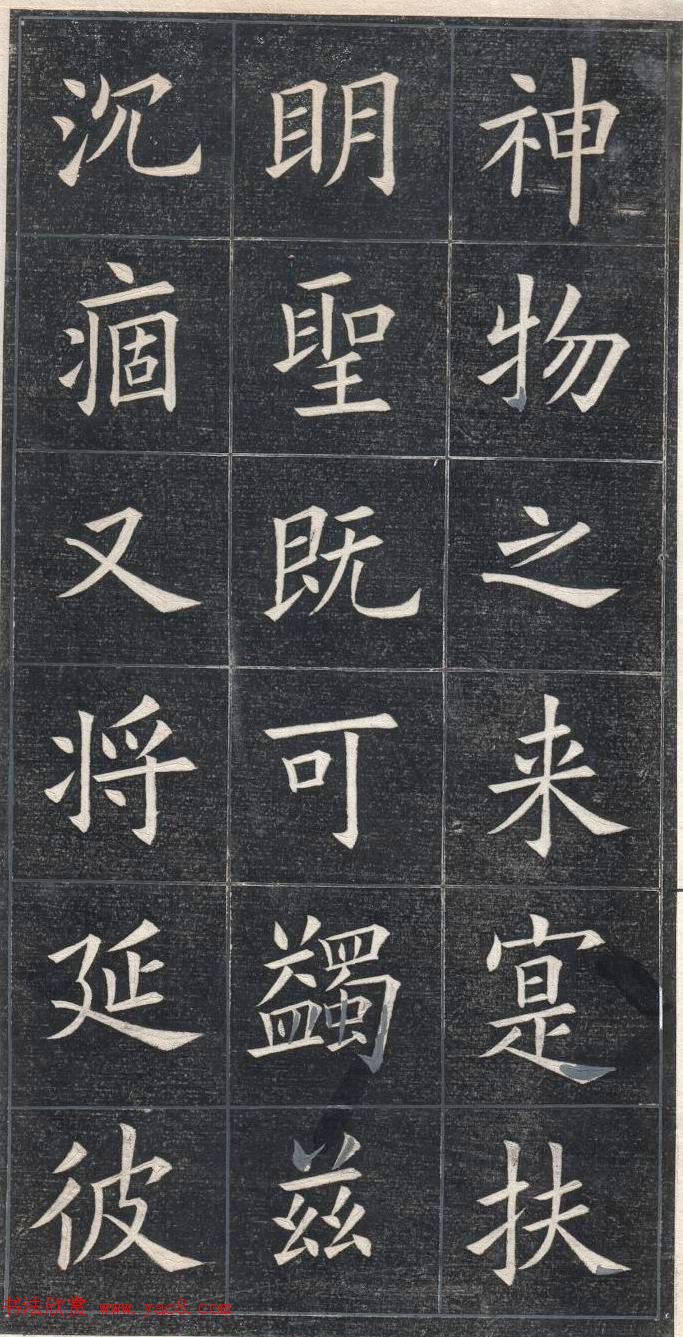 神物之来寔扶
眀聖既可蠲兹
沉痼又将延彼
书法欣赏 www.yac8.com